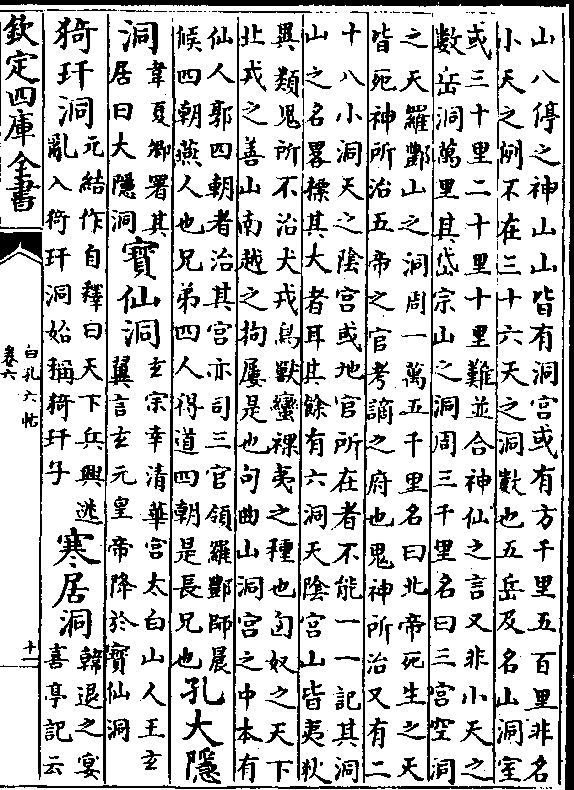 山八停之神山山皆有洞宫或有方千里五百里非名
小天之例不在三十六天之洞數也五岳及名山洞室
或三十里二十里十里難並合神仙之言又非小天之
數岳洞萬里其岱宗山之洞周三千里名曰三宫空洞
之天羅酆山之洞周一萬五千里名曰北帝死生之天
皆死神所治五帝之官考謫之府也鬼神所治又有二
十八小洞天之陰宫或地官所在者不能一一記其洞
山之名畧標其大者耳其餘有六洞天陰宫山皆夷狄
異類鬼所不治犬戎鳥獸蠻裸夷之種也匈奴之天下
北戎之善山南越之拘屢是也句曲山洞宫之中本有
仙人郭四朝者治其宫亦司三官領羅酆師晨
候四朝燕人也兄弟四人得道四朝是長兄也
孔大隱
洞
韋夏卿署其
居曰大隱洞
寳仙洞
玄宗幸清華宫太白山人王玄
翼言玄元皇帝降於寳仙洞
猗玗洞
元結作自釋曰天下兵興逃
亂入猗玗洞始稱猗玗子
寒居洞
韓退之宴
喜亭記云
欽定四庫全書
白孔六帖
卷六
十二